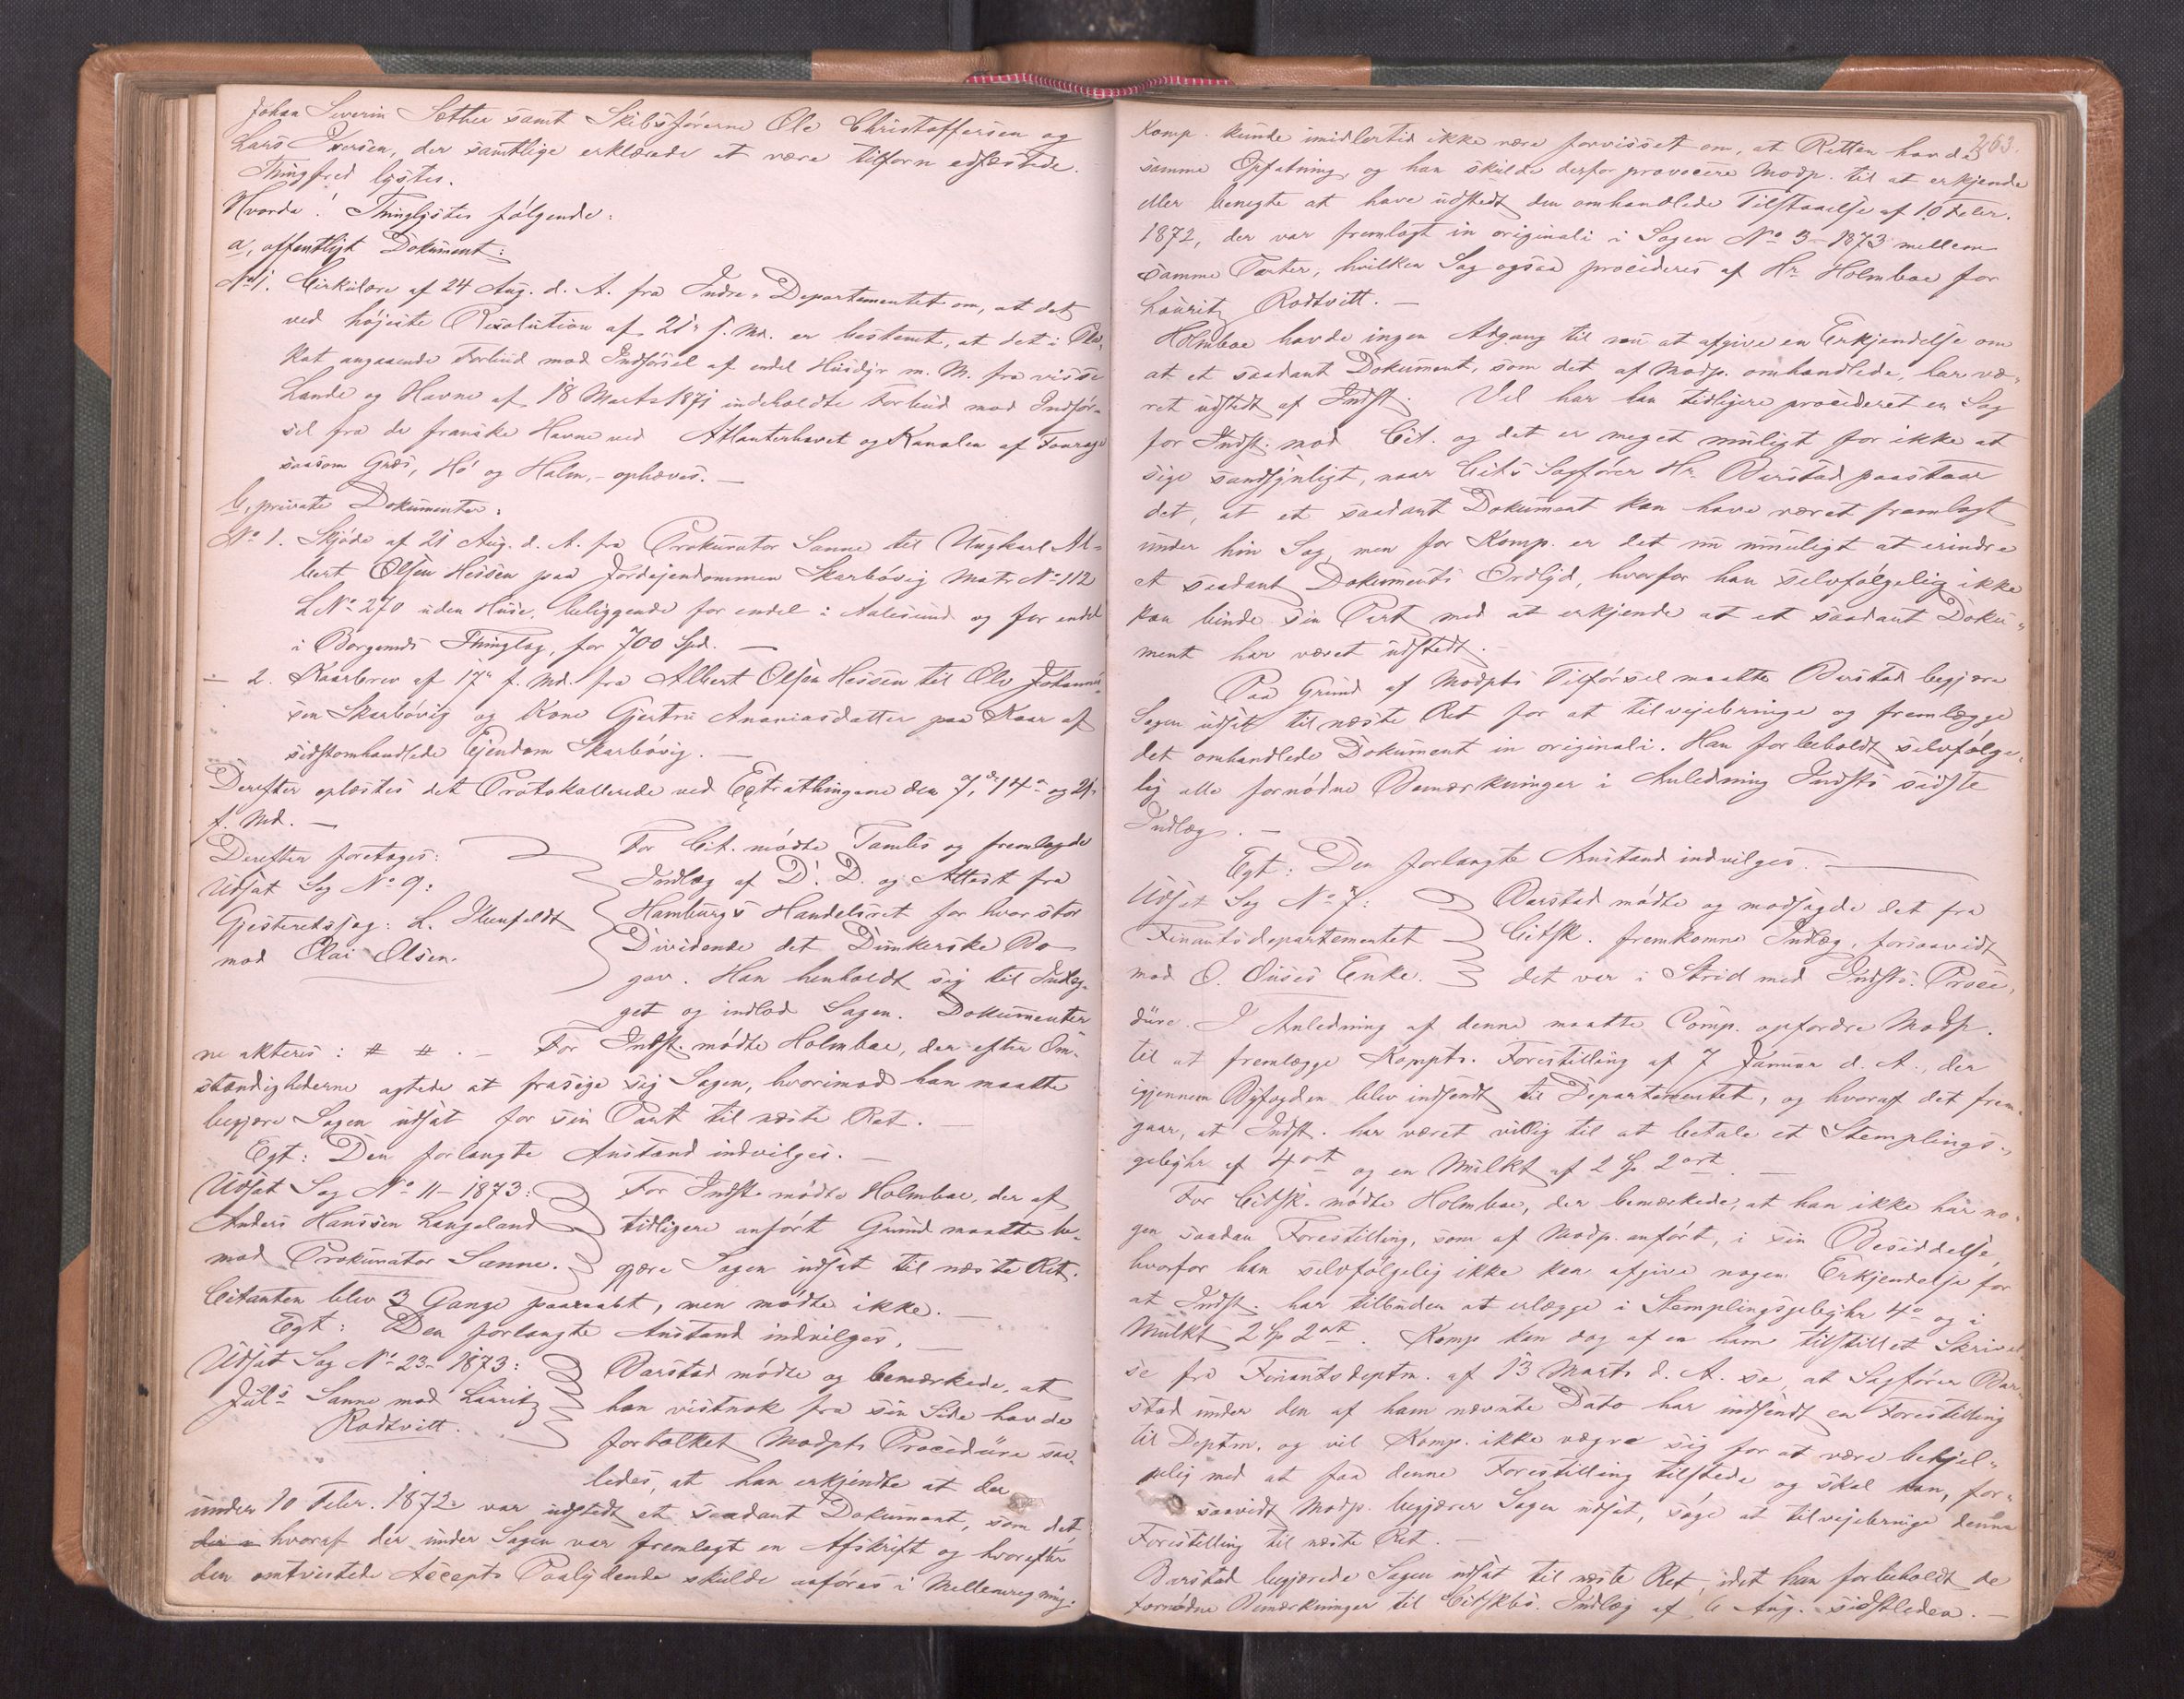 Johan Severin Sæther samt Skibsførerne Ole Christoffersen og
Lars Iversen, der samtlige erklærede at være tilforn edfæstede.
Thingfred lystes.
Hvorda! Thinglystes følgende:
a, offentligt Dokument:
No 1. Cirkulære af 24 Aug. d. A. fra Indre-Departementet om, at det
ved højeste Resolution af 21de f. Md. er bestemt, at det i Pla-
kat angaaende Forbud mod Indførsel af endel Husdyr m. M. fra visse
Lande og Havne af 18 Marts 1871 indeholdte Forbud mod Indfør-
sel fra de franske Havne ved Atlanterhavet og Kanalen af Fourage
saasom Græs, Hø og Halm, - ophæves. -
b, private Dokumenter:
No 1. Skjøde af 21 Aug. d. A. fra Prokurator Sanne til Ungkarl Al-
bert Olsen Hessen paa Jordejendommen Skarbøvig Matr No 112
L No 270 uden Huse, beliggende for endel i Aalesund og for endel
i Borgunds Thinglag, for 700 Spd. -
- 2. Kaarbrev af 17de f. Md. fra Albert Olsen Hessen til Ole Johanne-
sen Skarbøvig og Kone Gjertru Ananiasdatter paa Kaar af
sidstomhandlede Ejendom Skarbøvig. -
Derefter oplæstes det Protokollerede ved Extrathingene den 7de, 14de og 21de
f. Md. -
Derefter foretoges:
Udsat Sag No 9:
Gjesteretssag: L.
mod Olai Olsen.
For Cit. mødte Tambs og fremlagde
Indlæg af D. D. og Attest fra
Hamburgs Handelsret for hvor stor
Dividende det Dunkerske Bo
gav. Han henholdt sig til Indlæg-
get og indlod Sagen. Dokumenter-
ne akteres: # # . - For Indst. mødte Holmboe, der efter Om-
stændighederne agtede at frasige sig Sagen, hvorimod han maatte
begjære Sagen udsat for sin Part til næste Ret. -
Egt: Den forlangte Anstand indvilges. -
Udsat Sag No 11 - 1873:
Anders Hanssen Langeland
mod Prokurator Sanne.
For Indst. mødte Holmboe, der af
tidligere anført Grund maatte be-
gjære Sagen udsat til næste Ret.
Citanten blev 3 Gange paaraabt, men mødte ikke. -
Egt: Den forlangte Anstand indvilges.
Udsat Sag No 23 - 1873:
Juls Sanne mod Lauritz
Rødtvitt.
Barstad mødte og bemærkede, at
han vistnok fra sin Side havde
fortolket Modpts Procedure saa-
ledes, at han erkjendte at der
under 10 Febr. 1872 var udstedt et saadant Dokument, som det,
hvoraf der under Sagen var fremlagt en Afskrift og hvorefter
den omtvistede Accepts Paalydende skulde anføres i Mellemregning.
263.
Komp. kunde imidlertid ikke være forvisset om, at Retten havde
samme Opfatning, og han skulde derfor provocere Modp. til at erkjende
eller benegte at have udstedt den omhandlede Tilstaaelse af 10 Febr.
1872, der var fremlagt in originali i Sagen No 5 - 1873 mellem
samme Parter, hvilken Sag ogsaa procederes af Hr Holmboe for
Lauritz Rødtvitt. -
Holmboe havde ingen Adgang til nu at afgive en Erkjendelse om
at et saadant Dokument, som det af Modp. omhandlede, har væ-
ret udstedt af Indst. Vel har han tidligere procederet en Sag
for Indst. mod Cit. og det er meget muligt for ikke at
sige sandsynligt, naar Cits Sagfører Hr. Barstad paastaar
det, at et saadant Dokument kan have været fremlagt
under hin Sag, men for Komp. er det nu umuligt at erindre
et saadant Dokuments Ordlyd, hvorfor han selvfølgelig ikke
kan binde sin Part med at erkjende at et saadant Doku-
ment har været udstedt.
Paa Grund af Modpts Tilførsel maatte Barstad begjære
Sagen udsat til næste Ret for at tilvejebringe og fremlægge
det omhandlede Dokument in originali. Han forbeholdt selvfølge-
lig alle fornødne Bemærkninger i Anledning Indsts sidste
Indlæg. -
Egt: Den forlangte Anstand indvilges. -
Udsat Sag No 7:
Finantsdepartementet
mod O. Enke.
Barstad mødte og modsagde det fra
Citsk. fremkomne Indlæg, forsaavidt
det var i Strid med Indsts. Proce-
dure. I Anledning af denne maatte Comp. opfordre Modp.
til at fremlægge Kompts. Forestilling af 7 Januar d. A., der
igjennem Byfogden blev indsendt til Departementet, og hvoraf det frem-
gaar, at Indst. har været villig til at betale et Stemplings-
gebyhr af 4 ort og en Mulkt af 2 Sp. 2 ort. -
For Citsk. mødte Holmboe, der bemærkede, at han ikke har no-
gen saadan Forestilling, som af Modp. anført, i sin Besiddelse,
hvorfor han selvfølgelig ikke kan afgive nogen Erkjendelse for
at Indst. har tilbuden at erlægge i Stemplingsgebyhr 4o og i
Mulkt 2 Sp 2 ort. Komp. kan dog af en ham tilstillet Skrivel-
se fra Finantsdeptm. af 13 Marts d. A. se, at Sagfører Bar-
stad under den af ham nævnte Dato har indsendt en Forestilling
til Deptm. og vil Komp. ikke vægre sig for at være behjel-
pelig med at faa denne Forestilling tilstede og skal han, for-
saavidt Modp. begjærer Sagen udsat, søge at tilvejebringe denne
Forestilling til næste Ret. -
Barstad begjærede Sagen udsat til næste Ret, idet han forbeholdt de
fornødne Bemærkninger til Citskbs. Indlæg af 6 Aug. sidstleden. -